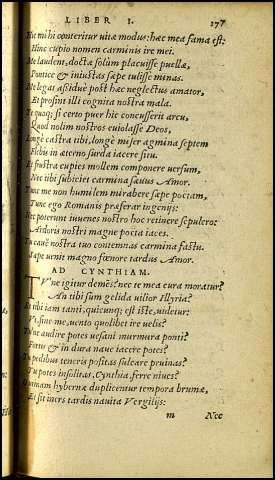 LIBER I. 177
Hic mihi conteritur vitæ modus: hæc mea fama est:
Hinc cupio nomen carminis ire mei.
Me laudent, doctæ solùm placuisse puellæ,
Pontice & iniustas sæpe tulisse minas.
Me legat assiduè post hæc neglectus amator,
Et prosint illi cognita nostra mala.
Te quoq; si certo puer hic concusserit arcu,
Quod nolim nostros euiolasse Deos,
Longè castra tibi, longè miser agmina septem
Flebis in æterno surda iacere situ.
Et frustra cupies mollem componere versum,
Nec tibi subiciet carmina sæuus Amor.
Tunc me non humilem mirabere sæpe poëtam,
Tunc ego Romanis præferar ingenijs:
Nec poterunt iuuenes nostro hoc retinere sepulcro:
Ardoris nostri magne poëta iaces.
Tu caue nostra tuo contemnas carmina fastu.
Sæpe venit magno fœnore tardus Amor.
AD CYNTHIAM.
TVne igitur demẽs? nec te mea cura moratur?
An tibi sum gelida vilior Illyria?
Et tibi iam tanti, quicunq; est iste, videtur:
Vt, sine me, vento quolibet ire velis?
Tu ne audire potes vesani murmura ponti?
Fortis & in dura naue iacere potes?
Tu pedibus teneris positas sulcare pruinas?
Tu potes insolitas, Cynthia, ferre niues?
O vtinam hybernæ duplicentur tempora brumæ,
Et sit iners tardis nauita Vergilijs:
m Nec